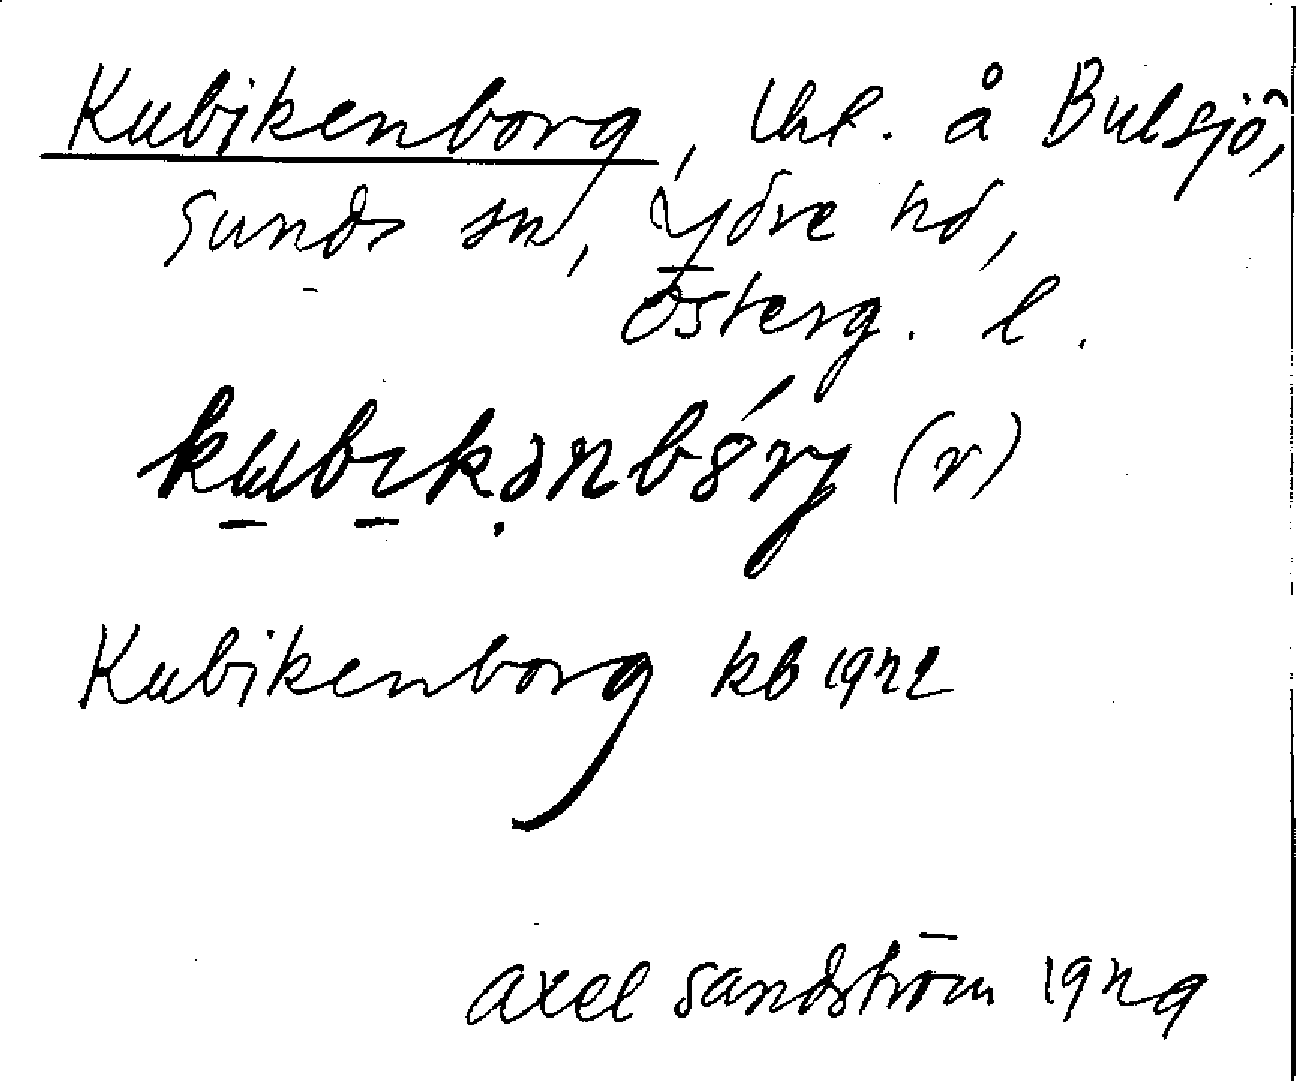 Kubikenborg, lht. å Bulsjö,
Sunds sn, Ydre hd,
Österg. l.
kubikənbórg (r)
Kubikenborg kb 1922
Axel Sandström 1929